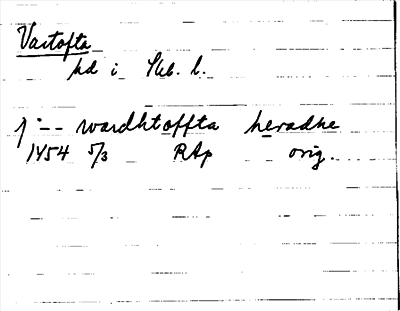 Vartofta
hd i Skb. l.
j -- wardhtoffta heradhe
1454 5/3 RAp orig.